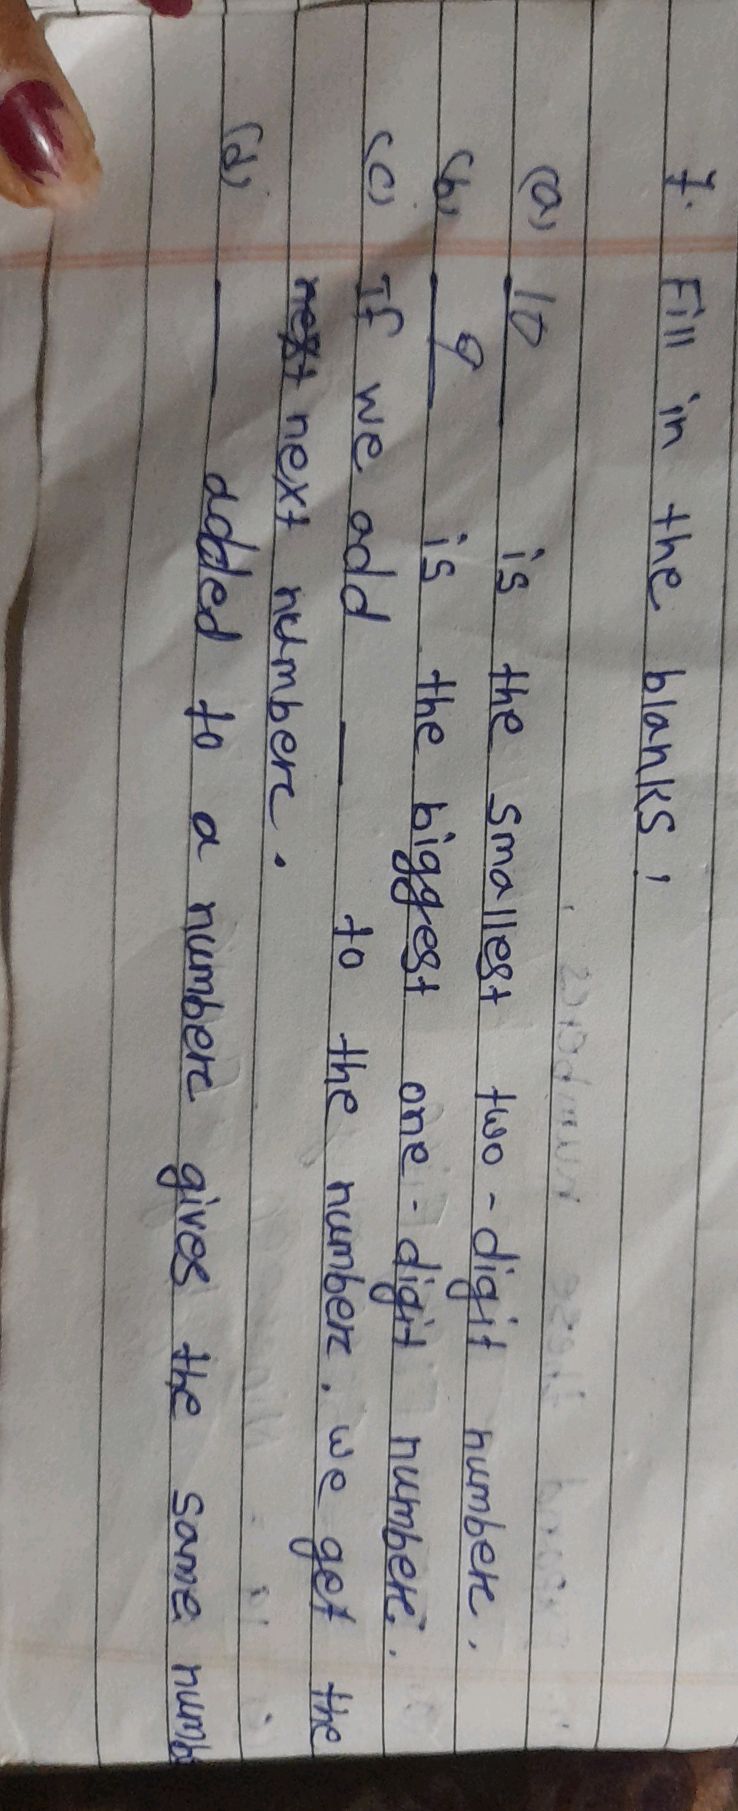 7. Fill in the blanks,
(a) 10 is the smallest two-digit number.
(b) 9 is the biggest one-digit number.
(c) If we add ___ to the number, we get the
next next number.
(d) ___ added to a number gives the same numb